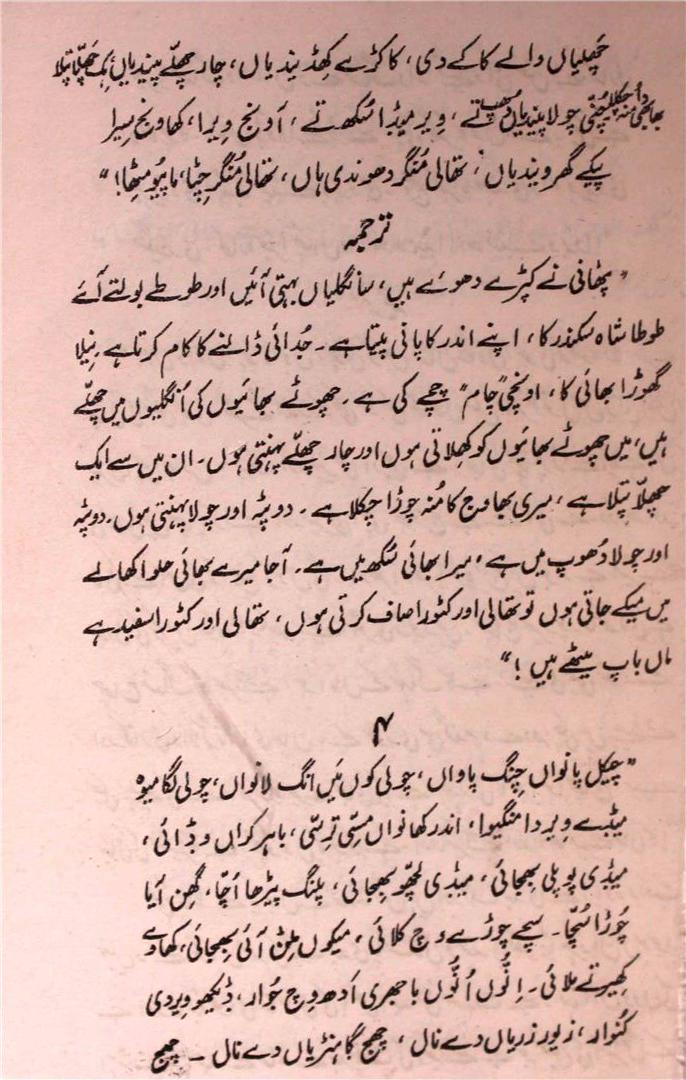 چھلیاں والے کاکے دی، کاکڑے کھڈیندیاں، چار چھلّے پیندیاں ہک چھلّا پتلا
بھابھی دا منہ چکلا چُنّی چولا پیندیاں دھپ تے، ویر میڈا سُکھ تے، آ ونج ویرا، کھا ونج سیرا
پیکے گھر ویندیاں، تھالی مُنگر دھوندی ہاں، تھالی مُنگر چِٹا، ما پیو مِٹھا!"
ترجمہ
"پٹھانی نے کپڑے دھوئے ہیں، سانگلیاں بہتی آئیں اور طوطے بولتے آئے
طوطا شاہ سکندر کا، اپنے اندر کا پانی پیتا ہے۔ جُدائی ڈالنے کا کام کرتا ہے۔ نیلا
گھوڑا بھائی کا، اونچی "چام" چچے کی ہے۔ چھوٹے بھائیوں کی اُنگلیوں میں چھلّے
ہیں، میں چھوٹے بھائیوں کو کھلاتی ہوں اور چار چھلّے پہنتی ہوں۔ ان میں سے ایک
چھلّا پتلا ہے، میری بھاوج کا مُنہ چوڑا چکلا ہے۔ دوپٹہ اور چولا پہنتی ہوں۔ دوپٹہ
اور چولا دُھوپ میں ہے، میرا بھائی سُکھ میں ہے۔ آجا میرے بھائی حلوا کھا لے
میں میکے جاتی ہوں تو تھالی اور کٹورا صاف کرتی ہوں، تھالی اور کٹورا سفید ہے
ماں باپ میٹھے ہیں!"
۴
"چیکل پانواں چِنگ پاواں، چولی کوں مَیں انگ لانواں، چولی لگا میوہ
میڈے ویر دا منگیوا، اندر کھانواں مِسّی ترِسّی، باہر کراں وڈائی،
میڈی پوپلی بھجائی، میڈی لُچھو بھجائی، پلنگ پیڑھا اُچّا، گھن آیا
چُوڑا سُچّا۔ سچے چوڑے وچ کلائی، میکوں مِلݨ آئی بھجائی، کھاوے
کھیر تے ملائی۔ اِنُّوں اُنُّوں باجھری اَدھ وِچ جُوار، ڈیکھو ویر دی
کنوار، زیور زریاں دے نال، چھج گاہنڑیاں دے نال۔ چھج